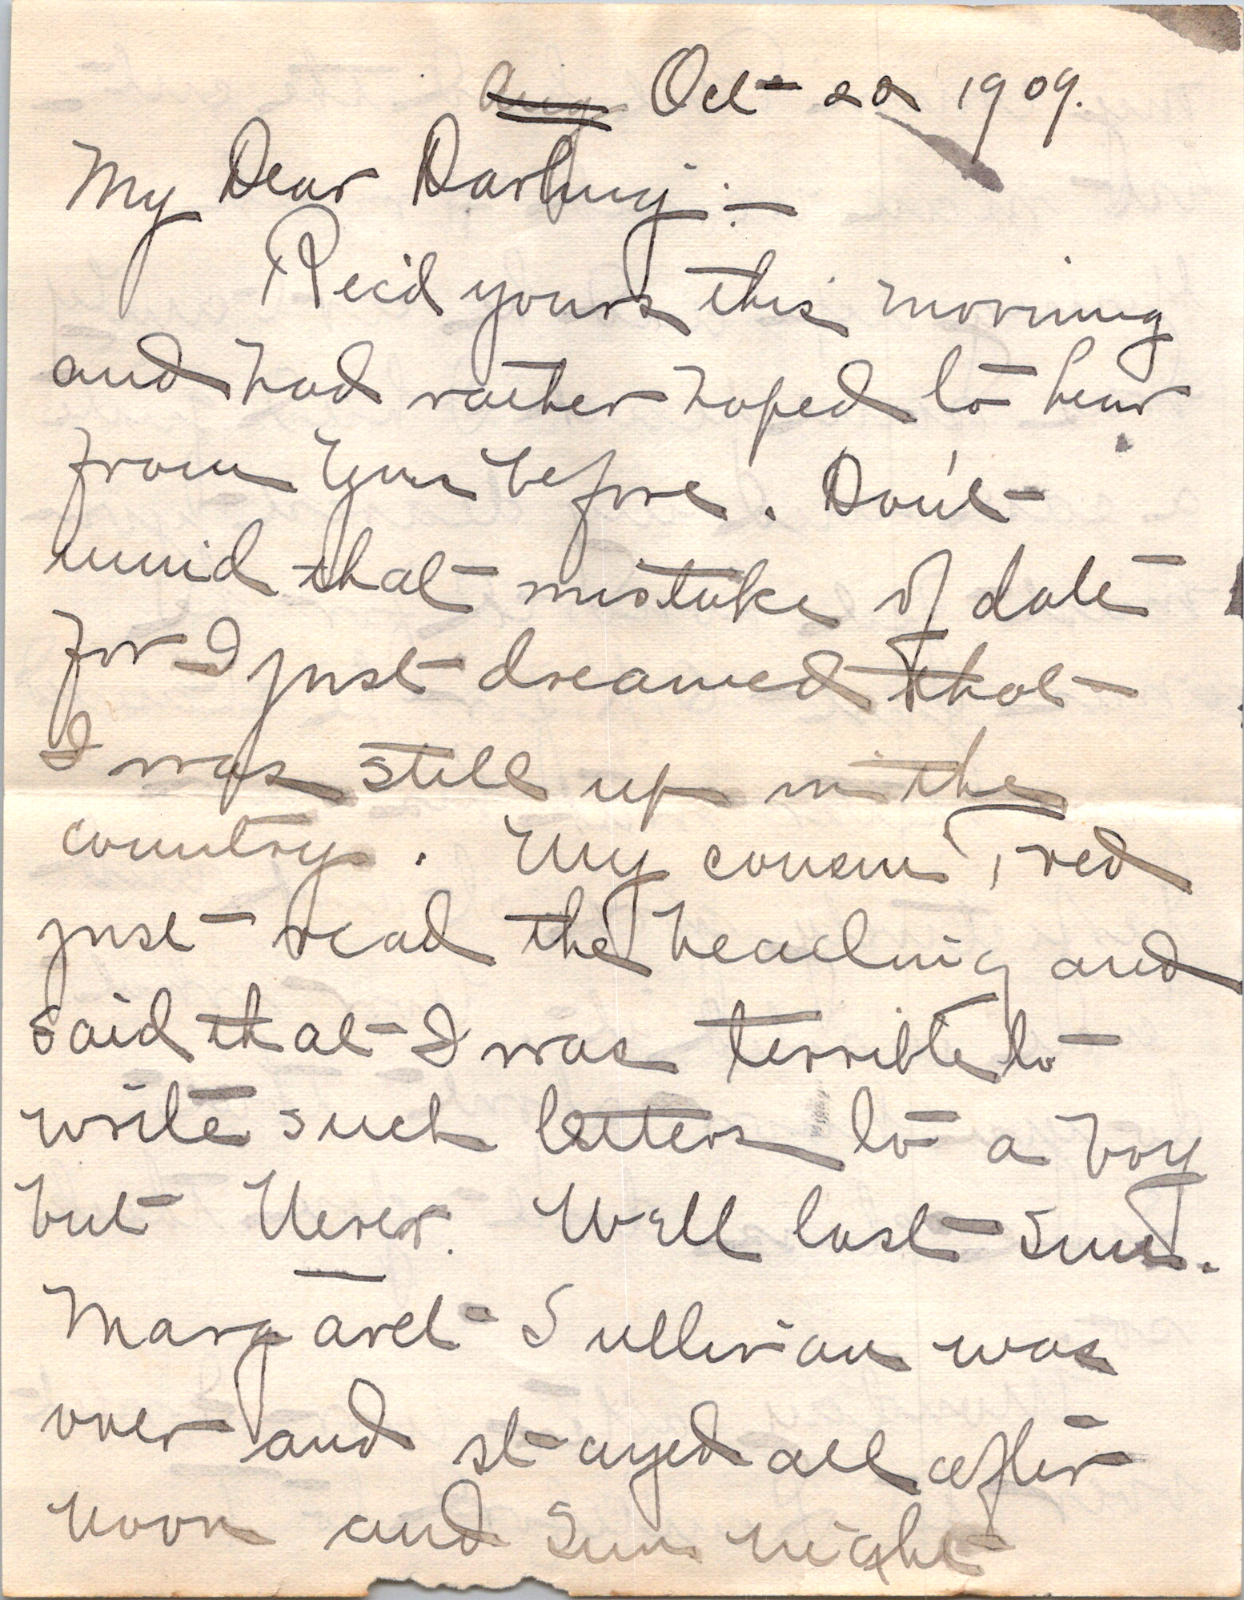 Aug Oct 20 1909.
My Dear Darling:—
Rec'd yours this morning
and had rather hoped to hear
from you before. Don't
mind that mistake of date
for I just dreamed that
I was still up in the
country. My cousin Fred
just read the heading and
said that I was terrible to
write such letters to a boy
but Never. Well last Sun.
Margaret Sullivan was
over and stayed all after
noon and Sun night